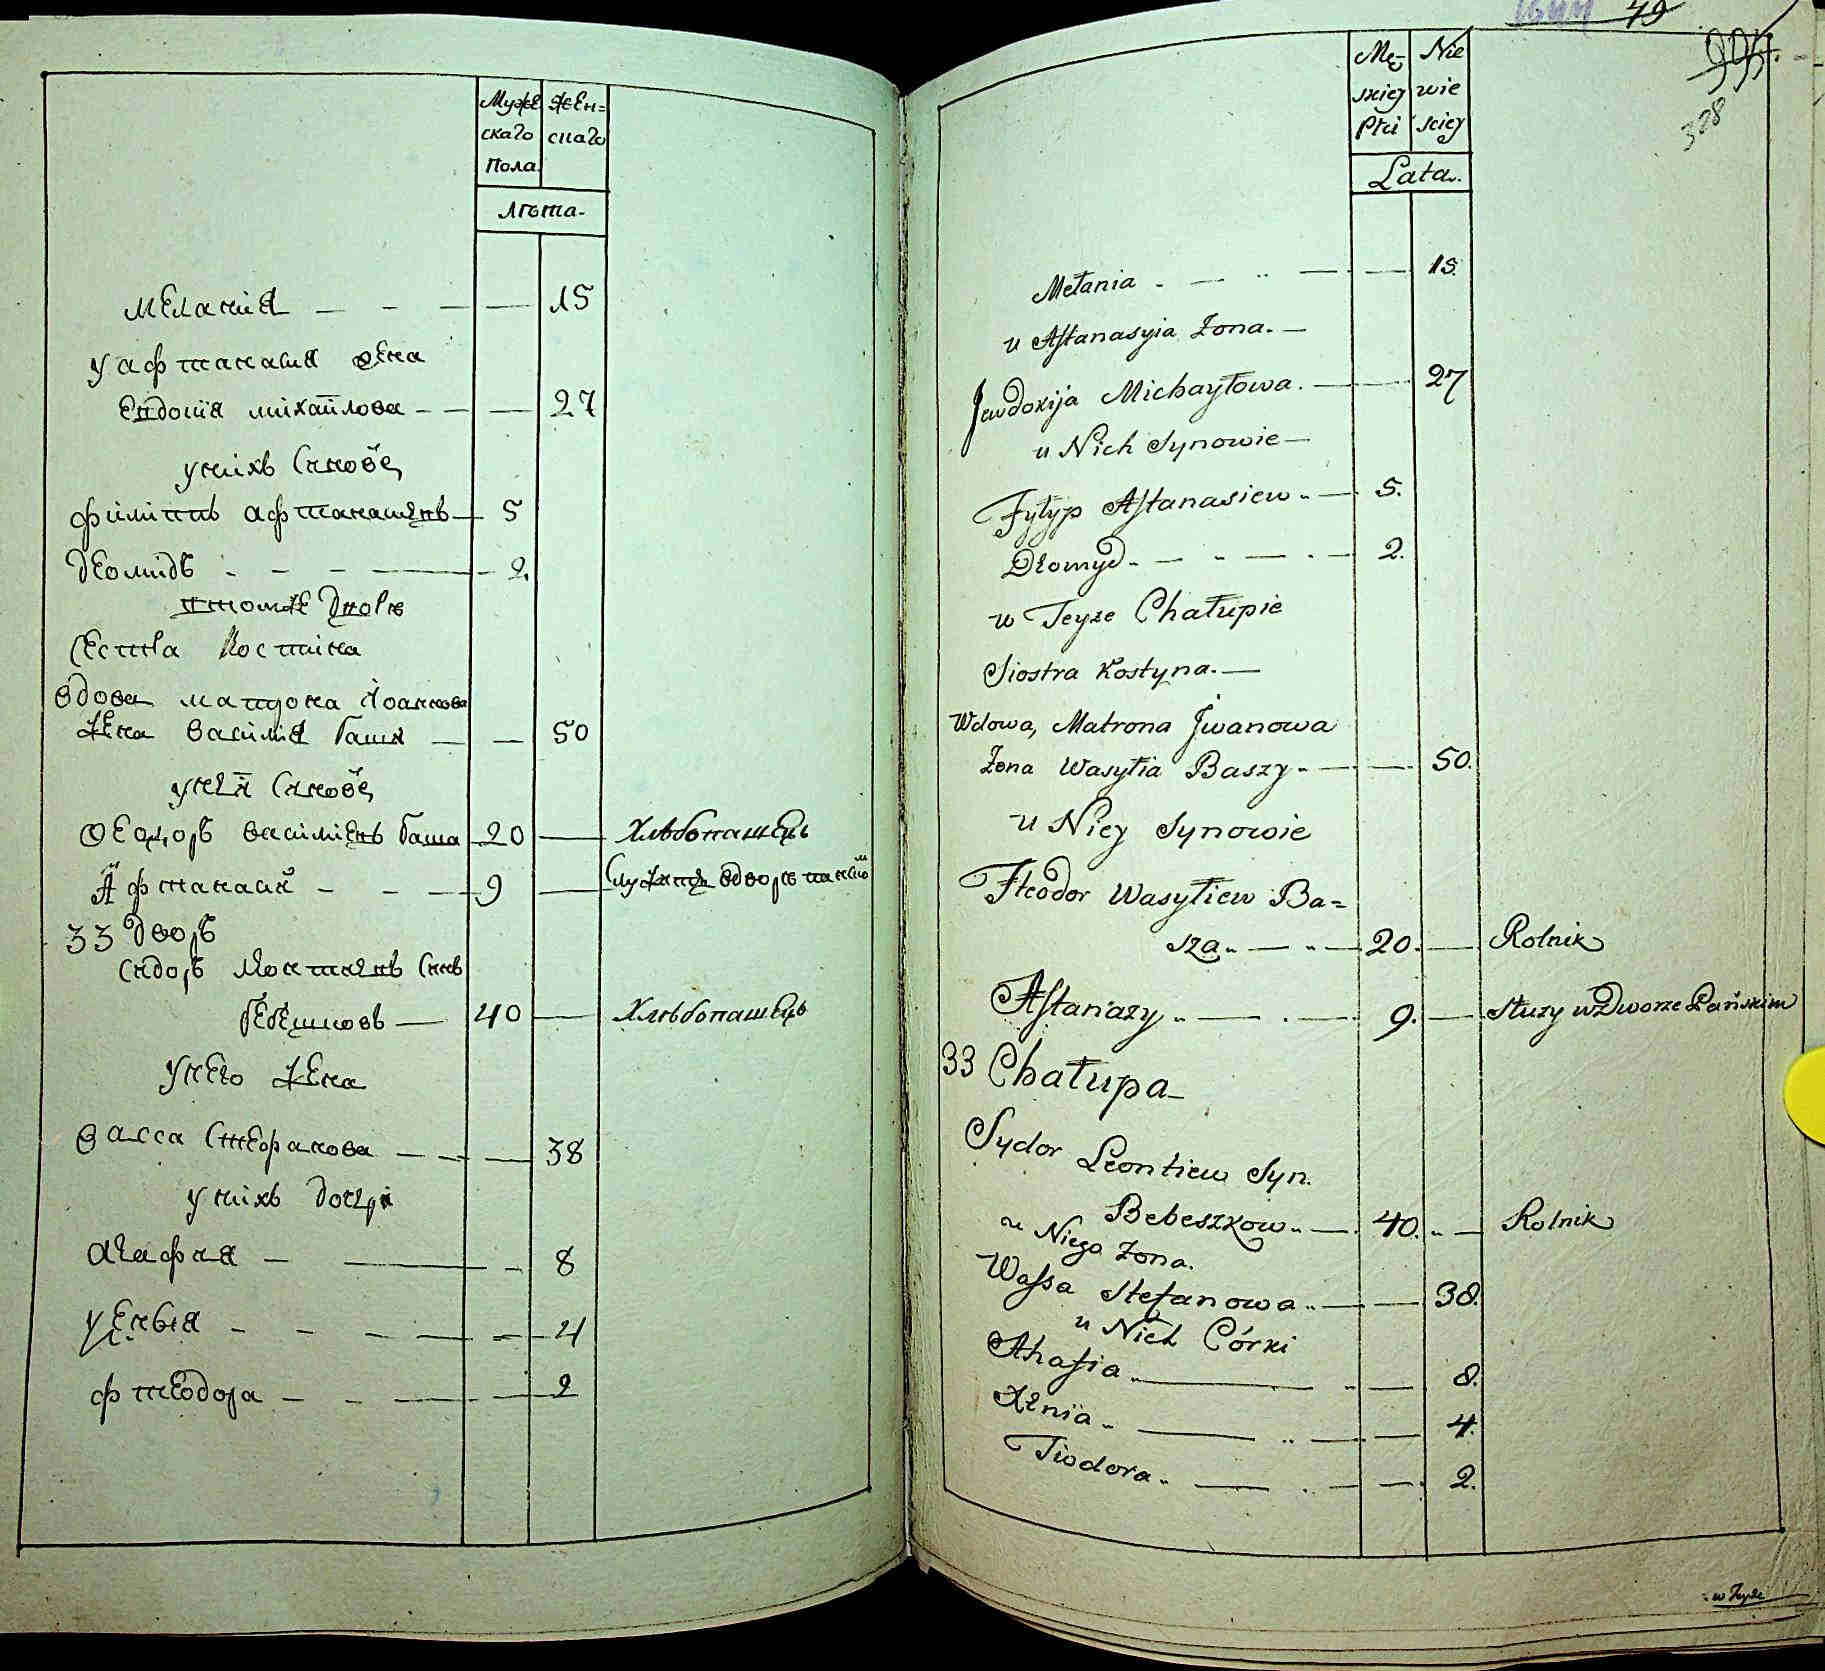 Муже
скаго
пола
женскаго
Лѣта.
Меланія — 15
у афтанасия жена
Евдокія михайлова — 27
у нихъ Синове,
филіппъ афтанасиевъ — 5
деомидъ — 2.
в томже дворѣ
Сестра Костіна
вдова матрона Іоаннова
жена василия баши — 50
у нея Синове,
Феодоръ василиевъ баша 20 — Хлѣбопашецъ
Афтанасий — 9 —
33 дворъ
Сидоръ Леонтиевъ Синъ
бебешковъ — 40 — Хлѣбопашецъ
у него жена
васса Стефанова — 38
у нихъ дочери
агафия — 8
ксения — 4
фтеодора — 2
49
995.
328
Mę-
skiey
Płci
Nie
wie
sciey
Lata.
Mełania — 15.
u Aftanasyia Żona. —
Jewdokija Michayłowa. — 27
u Nich Synowie —
Fyłyp Aftanasiew — 5.
Dłomyd — 2.
w Teyże Chałupie
Siostra Kostyna. —
Wdowa, Matrona Jwanowa
Żona Wasyłia Baszy — 50.
u Niey Synowie
Fteodor Wasyłiew Ba=
sza — 20. — Rolnik
Aftanazy — 9. — Służy w Dworze Pańskim
33 Chałupa —
Sydor Leontiew Syn.
Bebeszkow — 40. — Rolnik
u Niego Żona.
Wassa Stefanowa — 38.
u Nich Córki
Ahafia — 8.
Xenia — 4.
Tiodora — 2.
w Teyże